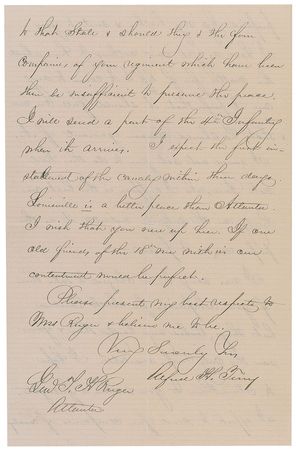 to that State & should they & the four
companies of your regiment which have been
there be insufficient to preserve the peace.
I will send a part of the 4th Infantry
when it arrives. I expect the first in-
stalment of the cavalry within three days.
Louisville is a better place than Atlanta.
I wish that you were up here. If our
old friends of the 18th were with us our
contentment would be perfect.
Please present my best respects to
Mrs Ruger & believe me to be.
Very Sincerely Yours
Alfred H. Terry
Genl T. H. Ruger
Atlanta